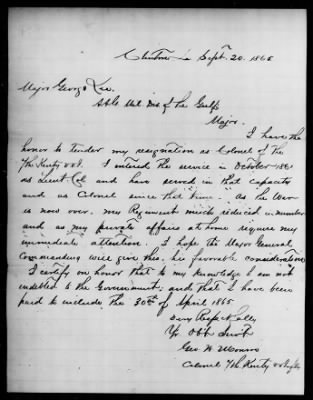 Clinton La Sept. 20. 1865
Major George Lee.
A.A.G. Mil. Div of the Gulf
Major.
I have the
honor to tender my resignation as Colonel of the
7th Kenty V.V.I. I entered the service in October 1861
as Lieut. Col. and have served in that capacity
and as Colonel since that time. As the War
is now over. my Regiment much reduced in number
and as my private affairs at home require my
immediate attention. I hope the Major General
Commanding will give this. his favorable consideration
I certify on honor that to my knowledge I am not
indebted to the Government, and that I have been
paid to include the 30th of April 1865
Very Respectfully
Yr Obt Servt
Geo. W. Monroe
Colonel 7th Kenty V.V. Infty